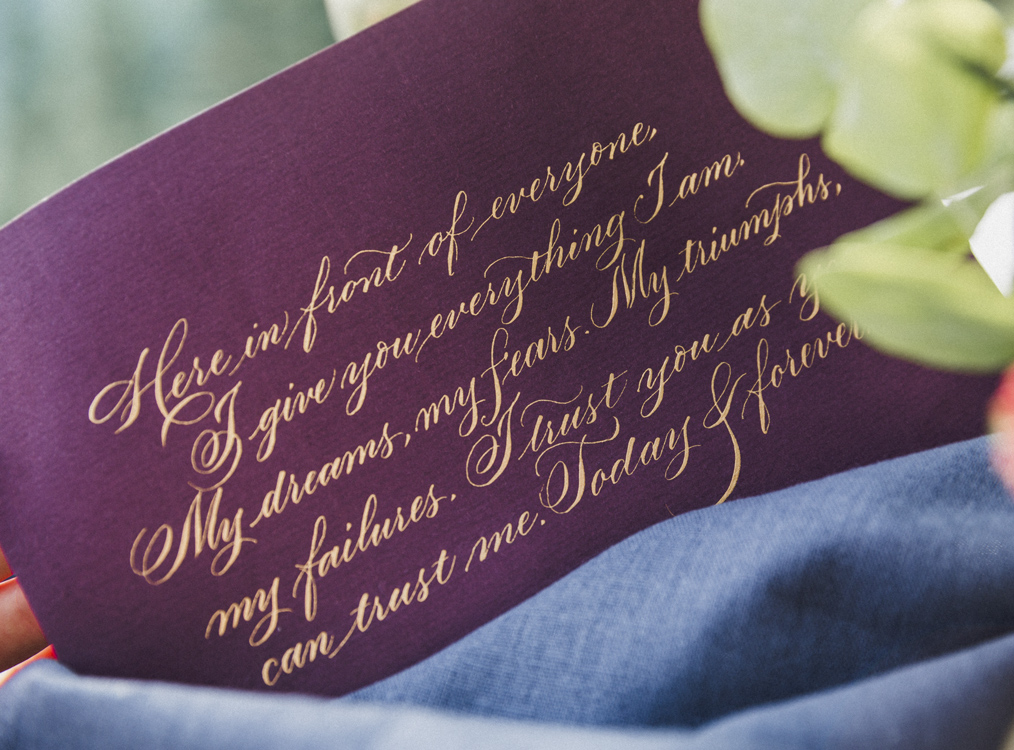 Here in front of everyone,
I give you everything I am.
My dreams, my fears. My triumphs,
my failures. I trust you as
can trust me. Today & forever